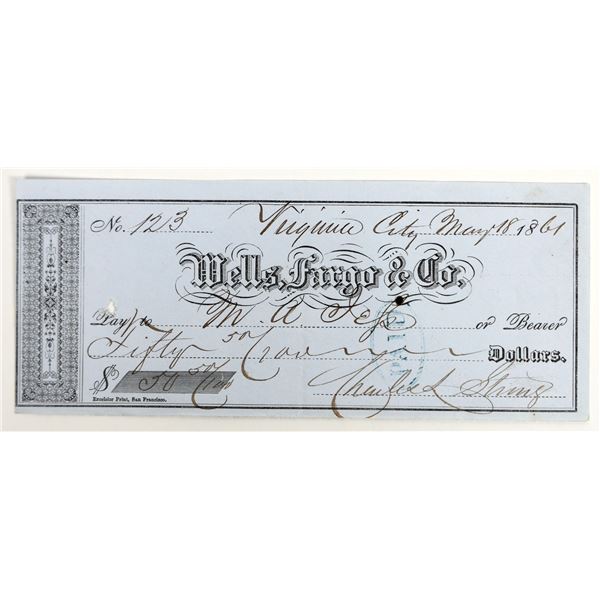 No. 123 Virginia City May 18 1861
Wells, Fargo & Co.
Pay to M. A. or Bearer
Fifty 50/100 Dollars.
$ 50 50/100 Charles L. Strong
Excelsior Print, San Francisco.
PAID